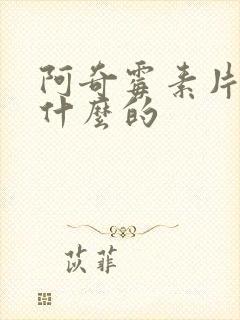 阿奇霉素片
什麼的
苡菲